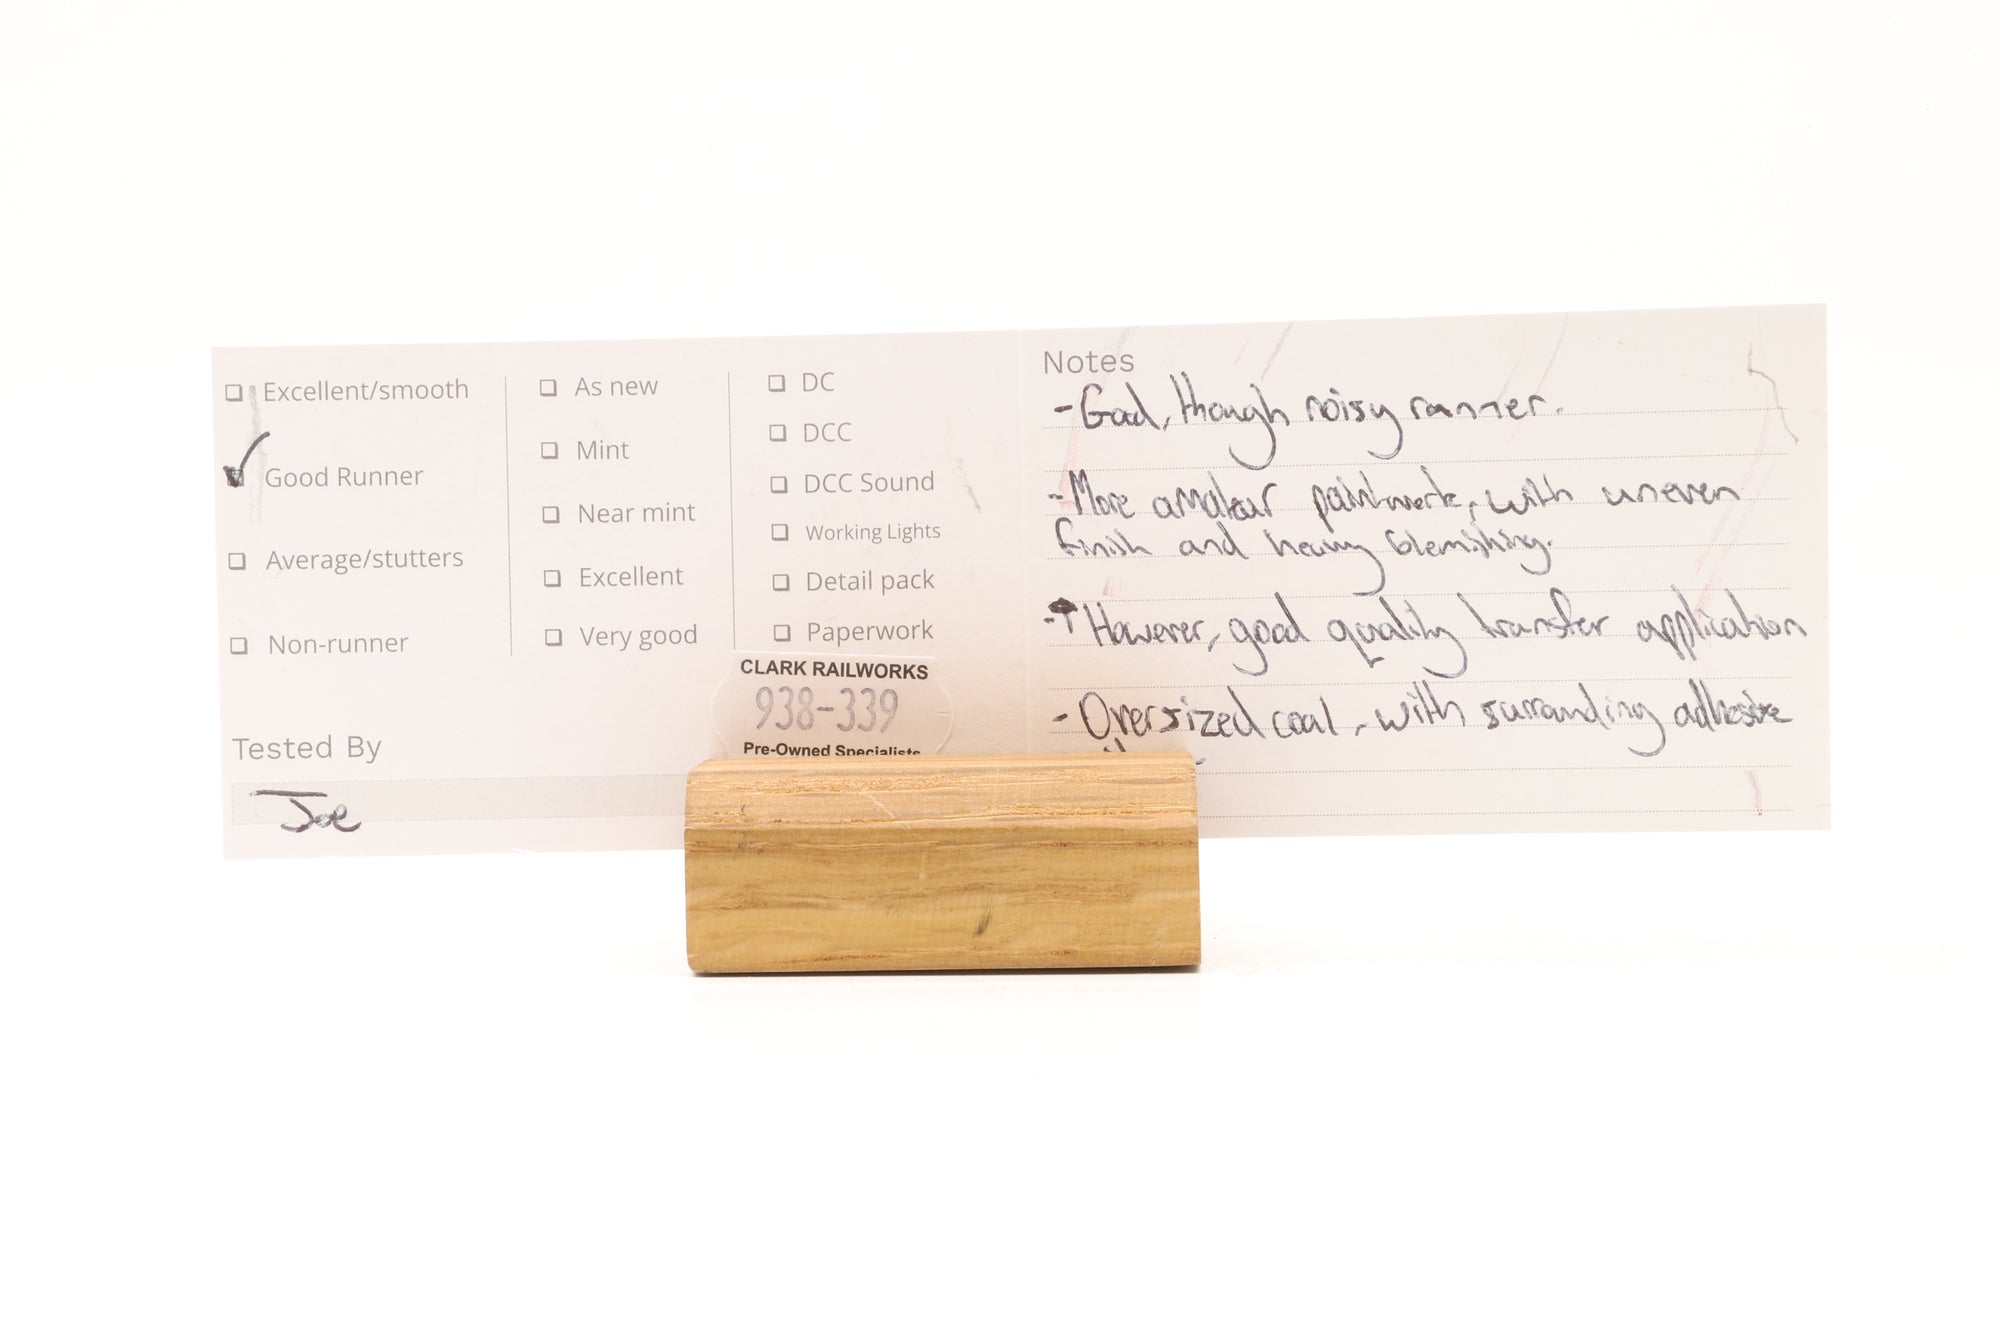 Excellent/smooth
Good Runner
Average/stutters
Non-runner
As new
Mint
Near mint
Excellent
Very good
DC
DCC
DCC Sound
Working Lights
Detail pack
Paperwork
CLARK RAILWORKS
938-339
Pre-Owned Specialists
Tested By
Joe
Notes
- Good, though noisy runner.
- More amateur paintwork, with uneven
finish and heavy blemishing.
- However, good quality transfer application
- Oversized coal, with surrounding adhesive